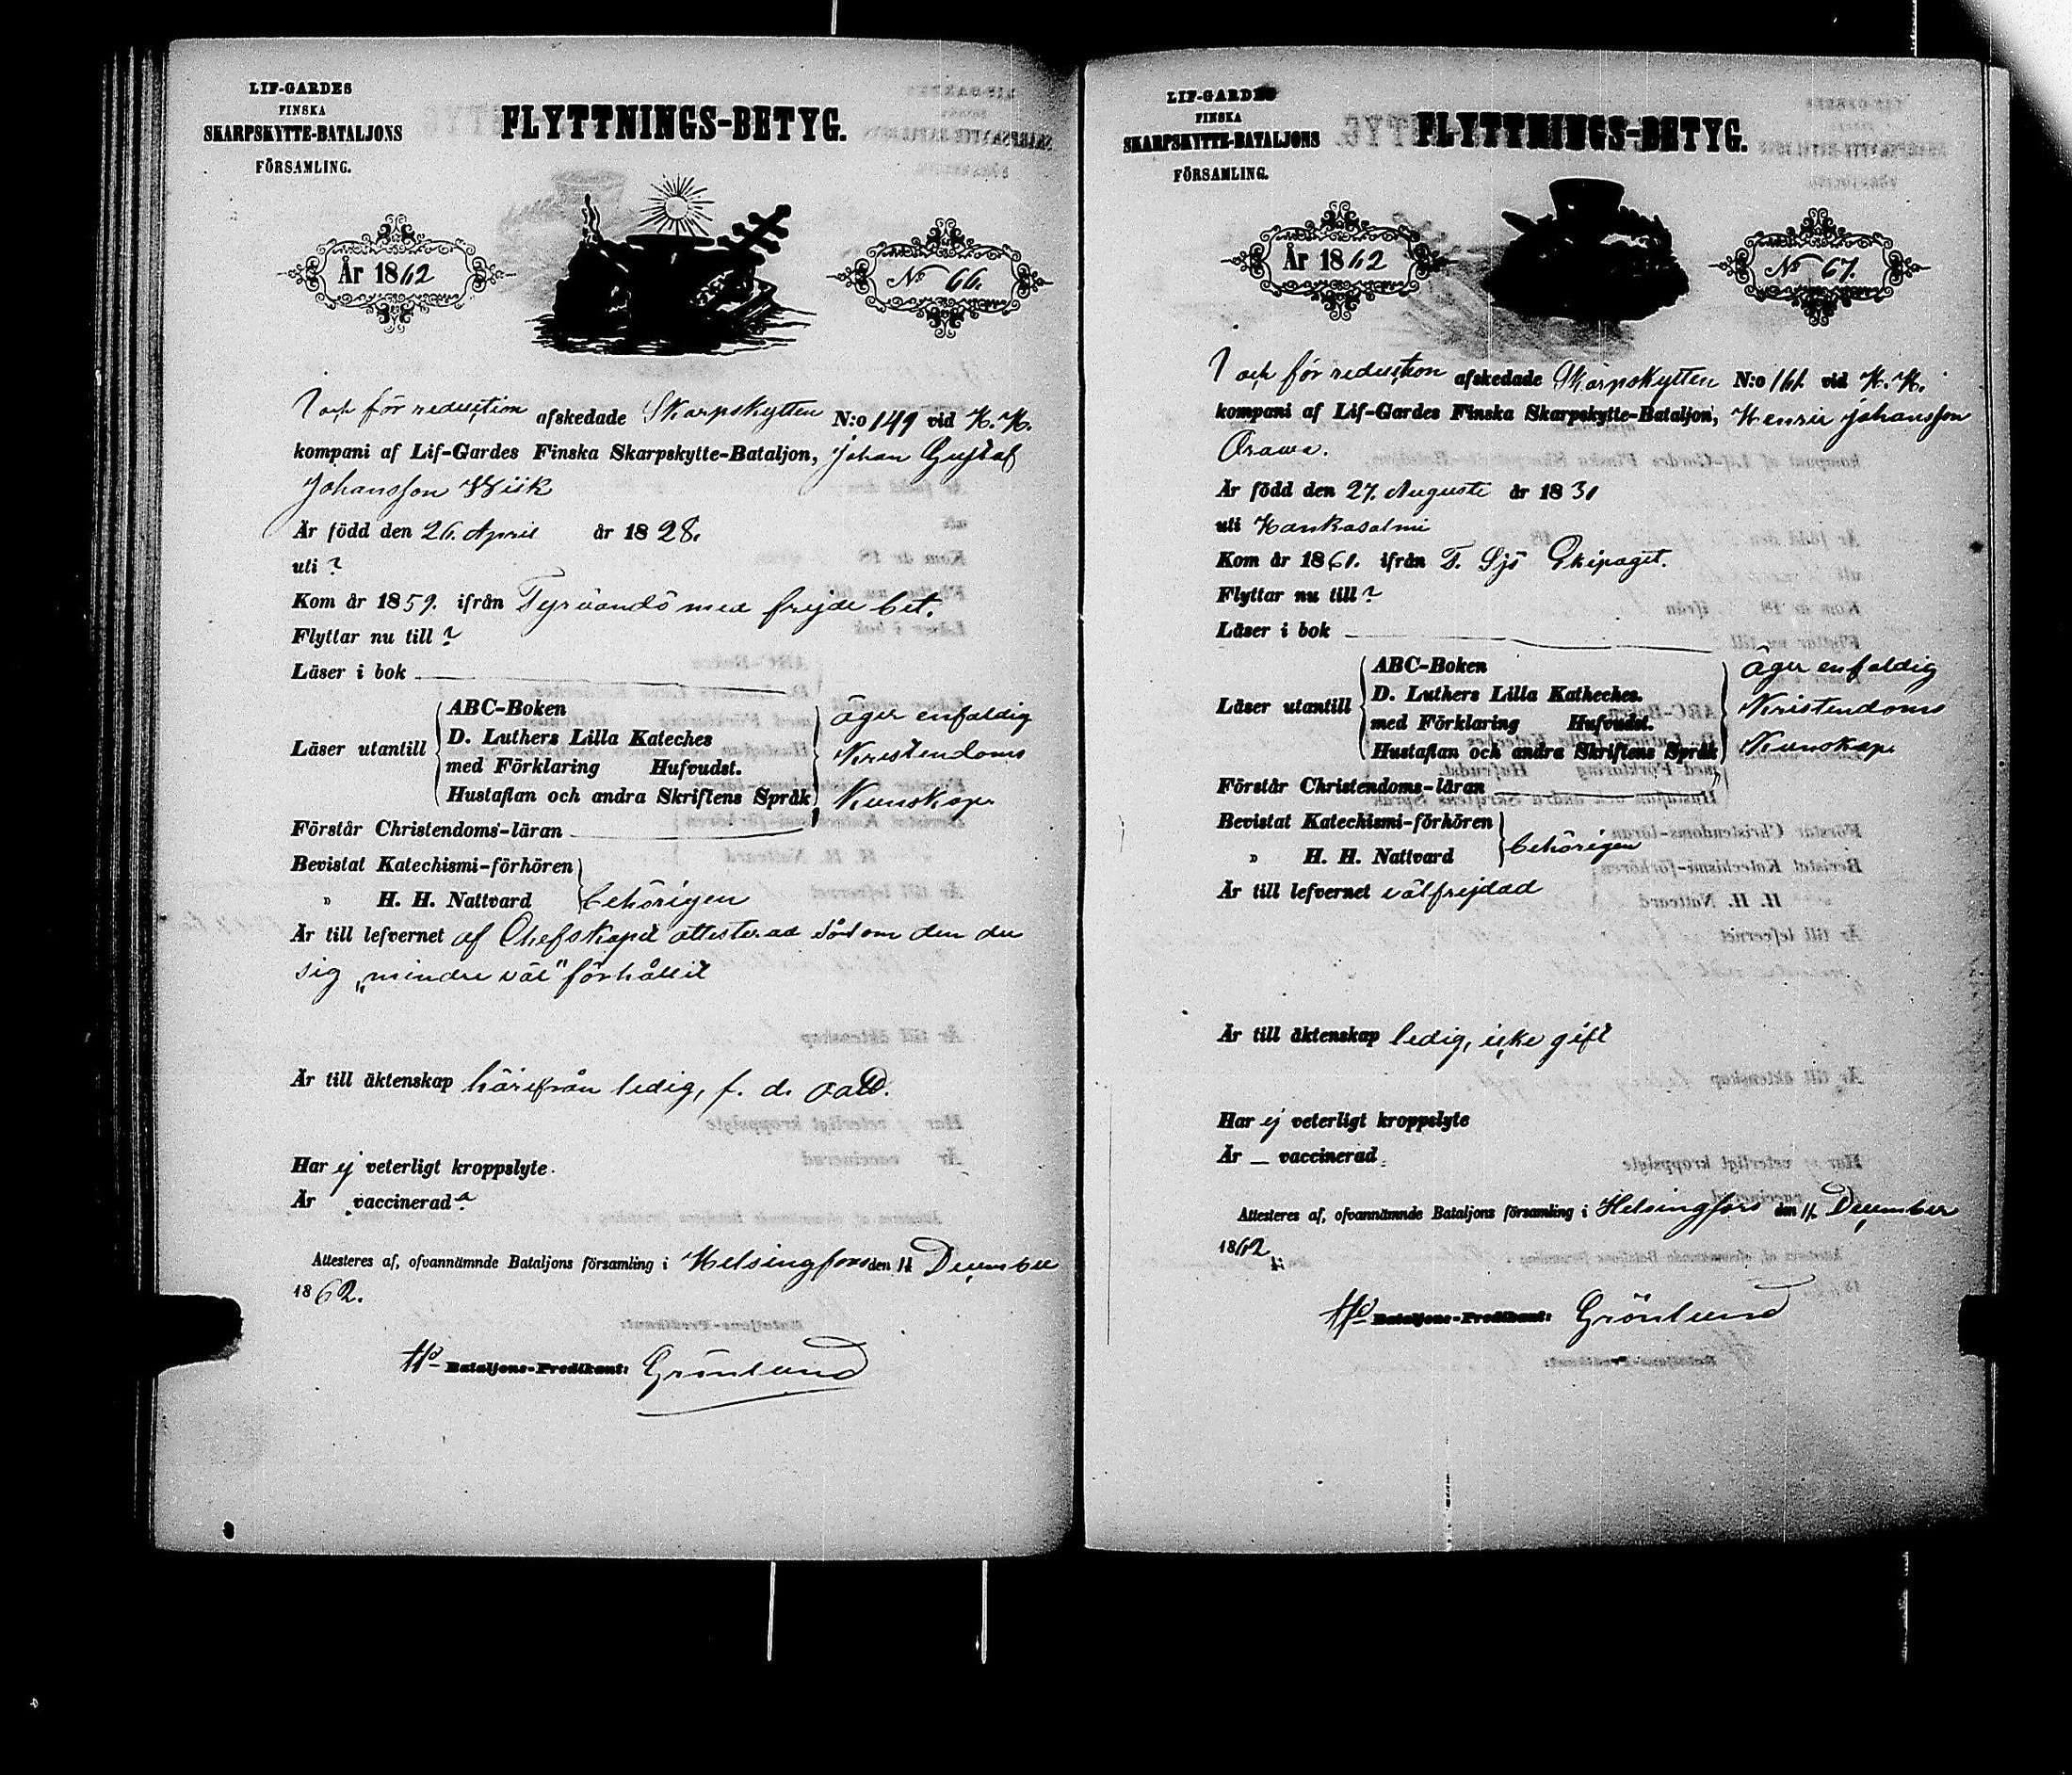 LIF-GARDES
FINSKA
SKARPSKYTTE-BATALJONS
FÖRSAMLING.
FLYTTNINGS-BETYG.
År 1862
No 66.
I och för reduction afskedade Skarpskytten N:o 149 vid K. K.
kompani af Lif-Gardes Finska Skarpskytte-Bataljon, Johan Gustaf
Johansson Wiik
Är född den 26. April år 1828.
uti ?
Kom år 1859. ifrån Tyrvändö med frejde bet.
Flyttar nu till ?
Läser i bok
Läser utantill
ABC-Boken
D. Luthers Lilla Kateches
med Förklaring Hufvudst.
Hustaflan och andra Skriftens Språk
äger enfaldig
Kristendoms
Kunskap
Förstår Christendoms-läran
Bevistat Katechismi-förhören
" H. H. Nattvard
behörigen
Är till lefvernet af Chefskapet attesterad såsom den der
sig „mindre väl" förhållit
Är till äktenskap härifrån ledig, f. d.
Har ej veterligt kroppslyte.
Är vaccinerad
Attesteres af, ofvannämnde Bataljons församling i Helsingfors den 11 December
1862.
Bataljons-Predikant: Grönlund
LIF-GARDES
FINSKA
SKARPSKYTTE-BATALJONS
FÖRSAMLING.
FLYTTNINGS-BETYG.
År 1862
No 67.
I och för reduction afskedade Skarpskytten N:o 161 vid K. K.
kompani af Lif-Gardes Finska Skarpskytte-Bataljon, Henric Johansson
Orawa.
Är född den 27. Augusti år 1831
uti Kankasalmi
Kom år 1861. ifrån F. Sjö Ekipaget.
Flyttar nu till ?
Läser i bok
Läser utantill
ABC-Boken
D. Luthers Lilla Katheches.
med Förklaring Hufvudst.
Hustaflan och andra Skriftens Språk
äger enfaldig
Kristendoms
Kunskap
Förstår Christendoms-läran "
Bevistat Katechismi-förhören
" H. H. Nattvard
behörigen
Är till lefvernet välfrejdad
Är till äktenskap ledig, icke gift
Har ej veterligt kroppslyte
Är — vaccinerad
Attesteres af, ofvannämnde Bataljons församling i Helsingfors den 11 December
1862
Bataljons-Predikant: Grönlund